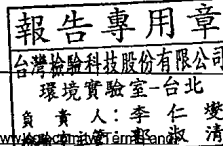 報告專用章
台灣檢驗科技股份有限公司
環境實驗室-台北
負責人：李仁燮